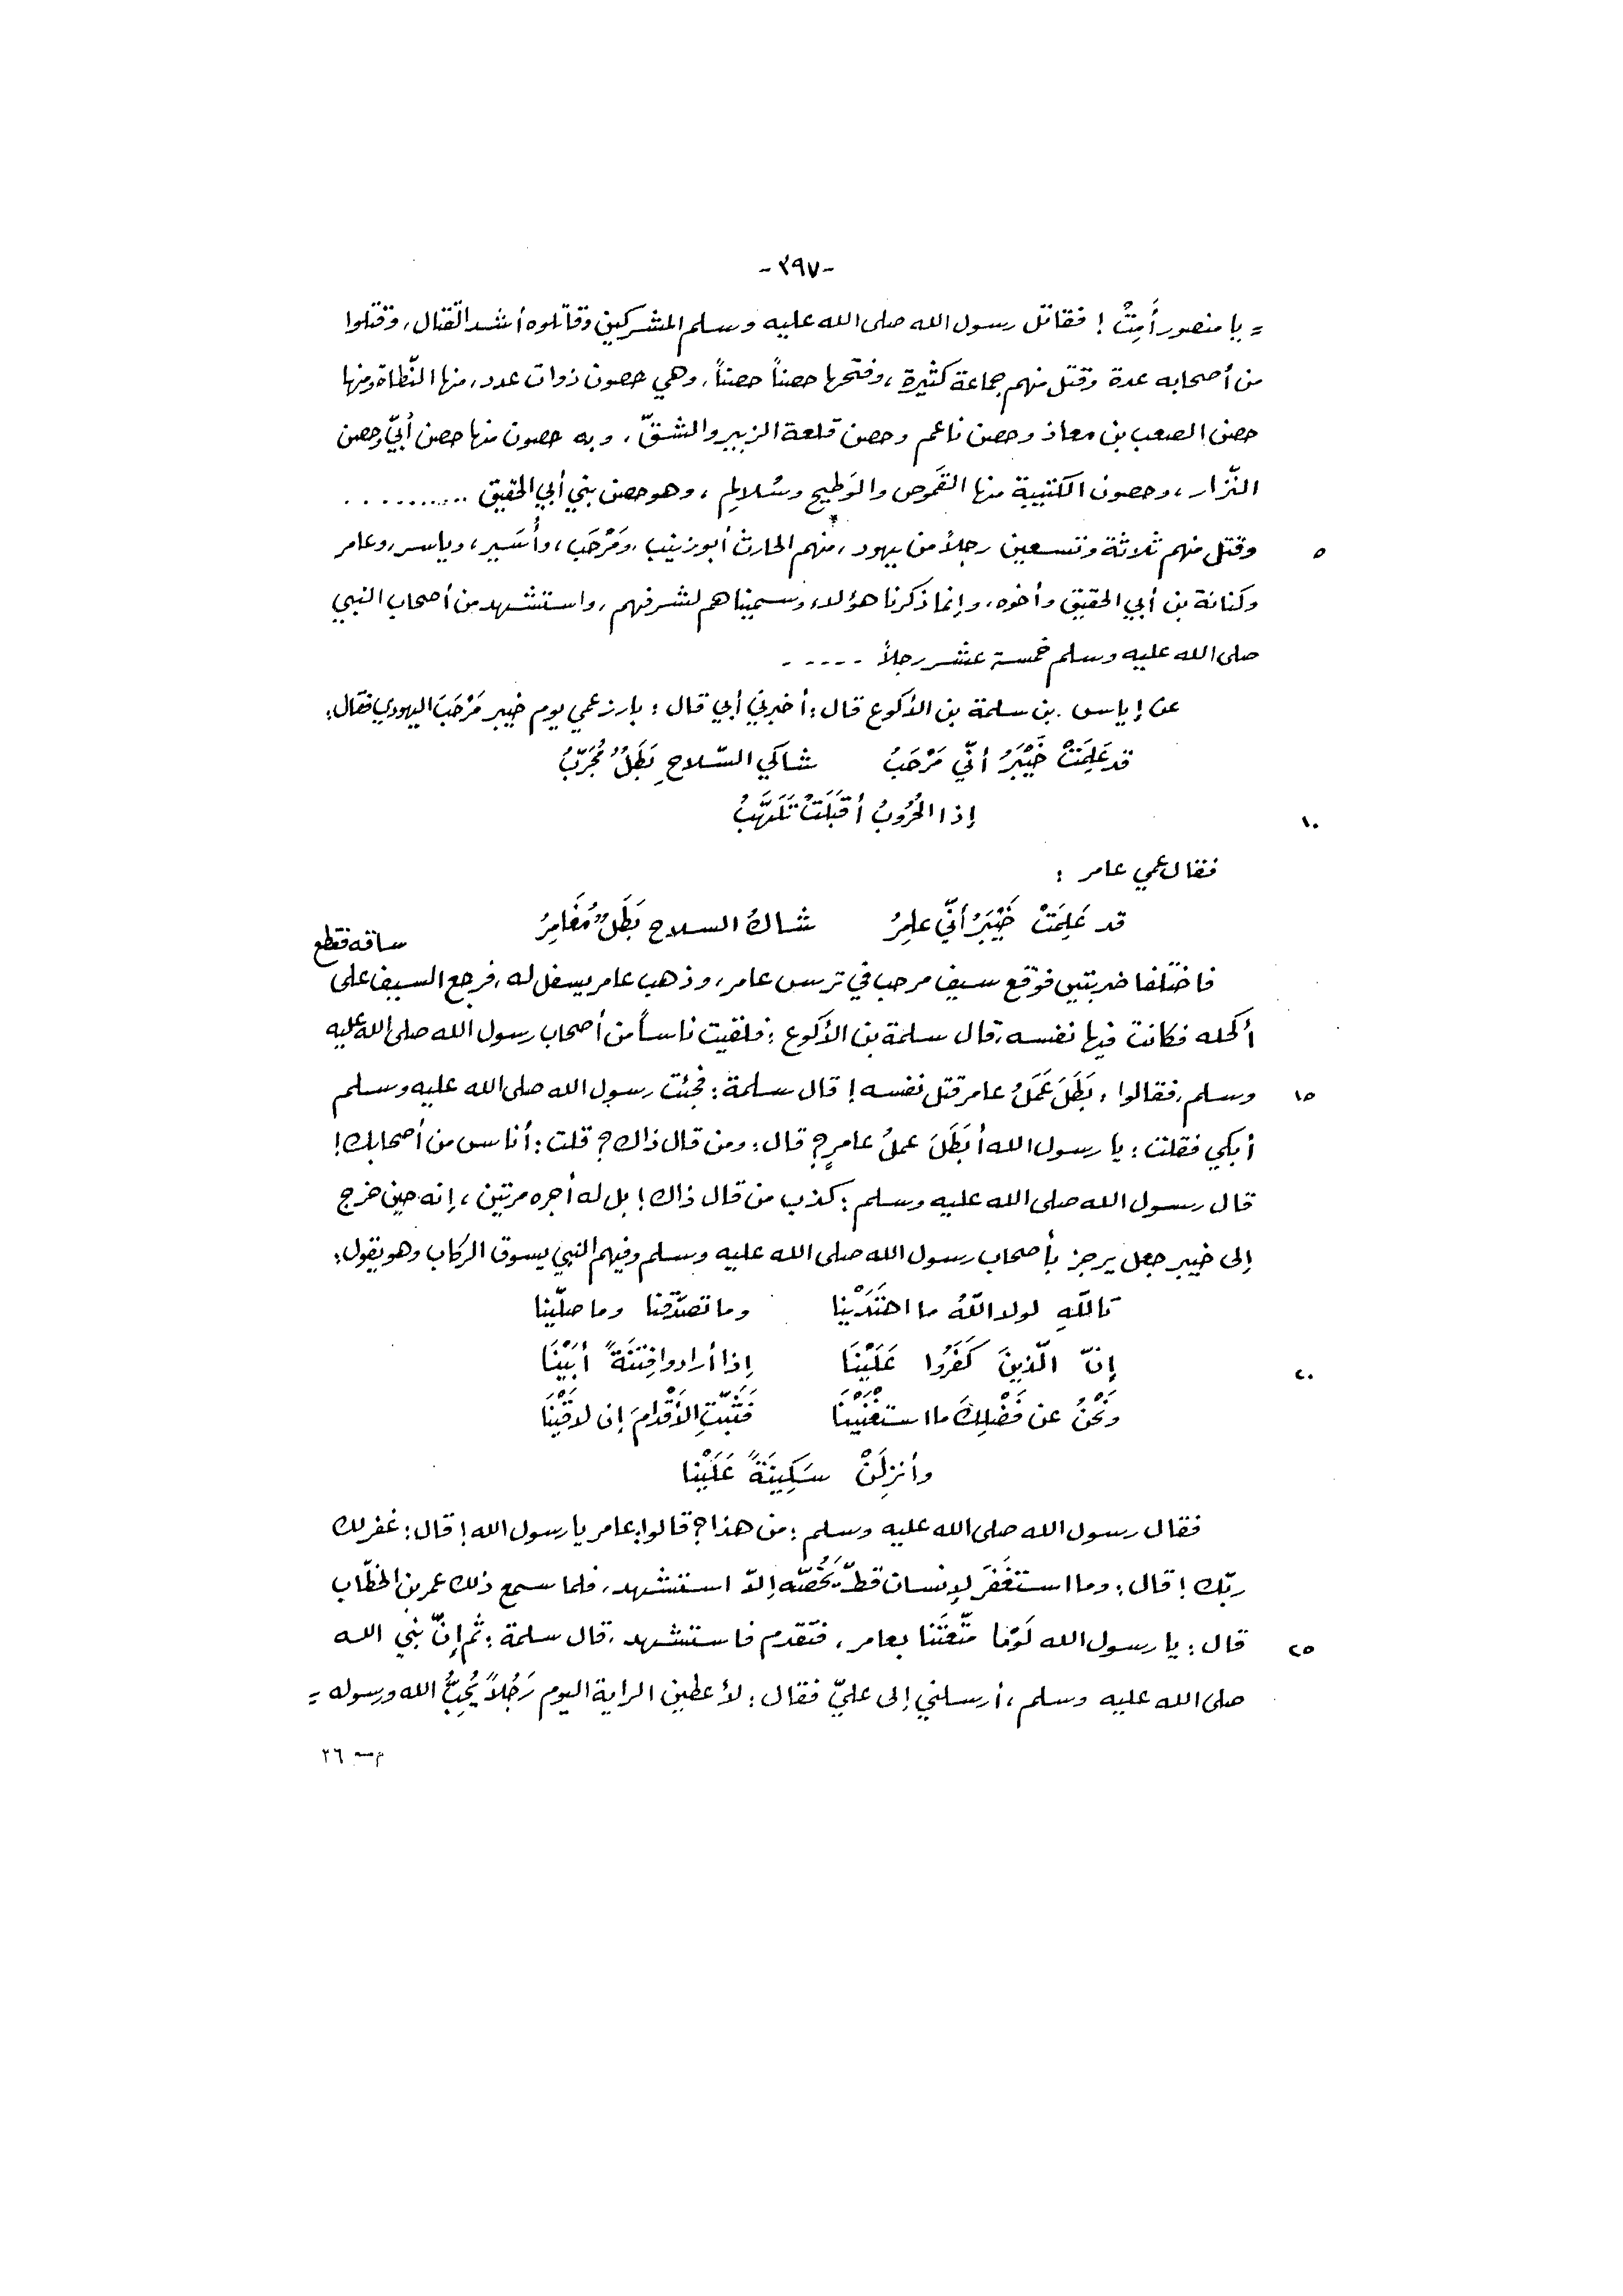 -٣٩٧-
= يا منصور أَمِتْ! فقاتل رسول الله صلى الله عليه وسلم المشركين وقاتلوه أشد القتال، وقتلوا
من أصحابه عدة وقتل منهم جماعة كثيرة، وفتحها حصناً حصناً، وهي حصون ذوات عدد، منها النّطاة ومنها
حصن الصعب بن معاذ وحصن ناعم وحصن قلعة الزبير والشقّ، وبه حصون منها حصن أُبيّ وحصن
النّزار، وحصون الكتيبة منها القَموص والوَطيح وسُلالِم، وهو حصن بني أبي الحقيق ..........
٥ وقتل منهم ثلاثة وتسعين رجلاً من يهود، منهم الحارث أبو زينب، ومَرْحَب، وأُسَير، وياسر، وعامر
وكنانة بن أبي الحقيق وأخوه، وإنما ذكرنا هؤلاء وسميناهم لشرفهم، واستشهد من أصحاب النبي
صلى الله عليه وسلم خمسة عشر رجلاً -----
عن إياس بن سلمة بن الأكوع قال: أخبرني أبي قال: بارز عمي يوم خيبر مَرْحَبَ اليهودي فقال:
قد عَلِمَتْ خَيْبَرُ أنّي مَرْحَبُ شاكي السّلاحِ بَطَلٌ مُجَرّبُ
١٠ إذا الحُرُوبُ أقْبَلَتْ تَلَهَّبُ
فقال عمي عامر:
قد عَلِمَتْ خَيْبَرُ أنّي عامِرُ شاكُ السلاح بَطَلٌ مُغَامِرُ
فاختلفا ضربتين فوقع سيف مرحب في ترس عامر، وذهب عامر يسفل له، فرجع السيف على ساقه فقطع
أكحله فكانت فيها نفسه، قال سلمة بن الأكوع: فلقيت ناساً من أصحاب رسول الله صلى الله عليه
١٥ وسلم، فقالوا، بَطَلَ عَمَلُ عامر قتل نفسه! قال سلمة: فجئت رسول الله صلى الله عليه وسلم
أبكي فقلت: يا رسول الله أبَطَلَ عملُ عامرٍ؟ قال: ومن قال ذاك؟ قلت: أناس من أصحابك!
قال رسول الله صلى الله عليه وسلم: كذب من قال ذاك! بل له أجره مرتين، إنه حين خرج
إلى خيبر جعل يرجز بأصحاب رسول الله صلى الله عليه وسلم وفيهم النبي يسوق الركاب وهو يقول:
تاللّهِ لولا اللّهُ ما اهْتَدَيْنا وما تصَدّقنا وما صلّينا
٢٠ إنّ الّذينَ كَفَرُوا عَلَيْنَا إذا أرادوا فِتنَةً أبَيْنَا
ونَحْنُ عن فَضْلِكَ ما استَغْنَيْنَا فَثَبّتِ الأقْدامَ إن لاقَيْنَا
وأنزِلَنْ سَكِينَةً عَلَيْنا
فقال رسول الله صلى الله عليه وسلم: من هذا؟ قالوا: عامر يا رسول الله! قال: غفر لك
ربّك! قال: وما استغفَرَ لإنسان قطّ يَخُصّه إلاّ استشهد، فلما سمع ذلك عمر بن الخطّاب
٢٥ قال: يا رسول الله لَوْمَا مَتّعتَنا بعامر، فتقدم فاستشهد، قال سلمة: ثم إنّ نبي الله
صلى الله عليه وسلم، أرسلني إلى عليّ فقال: لأعطين الراية اليوم رَجُلاً يُحِبُّ الله ورسوله =
٢٦